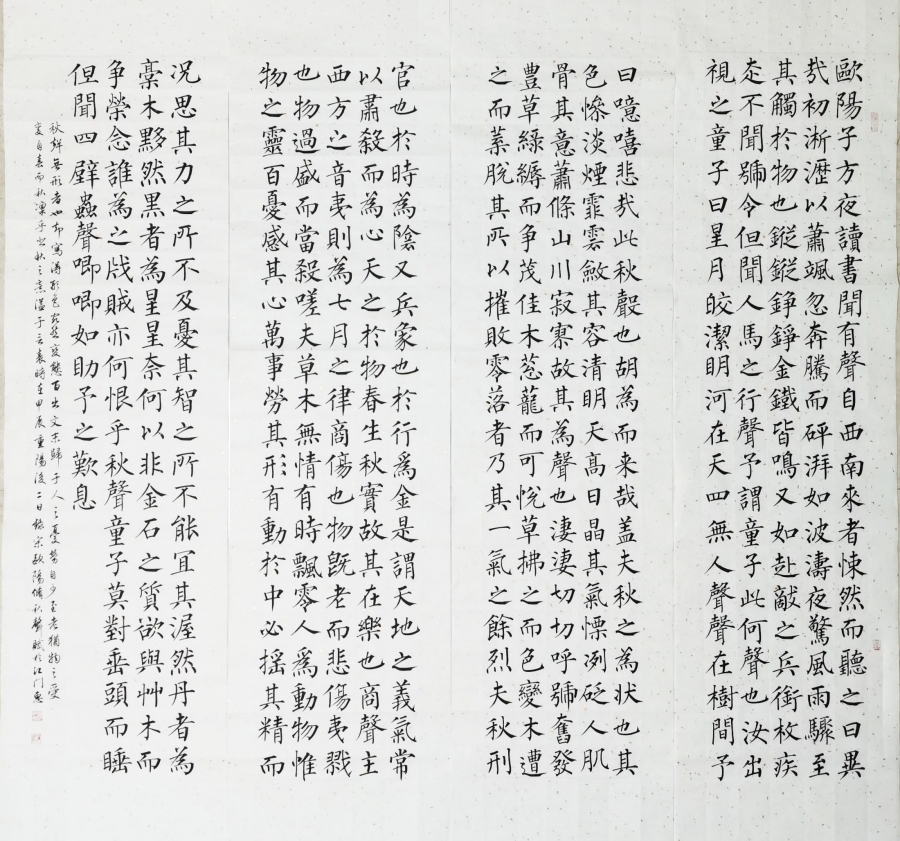 歐陽子方夜讀書聞有聲自西南來者悚然而聽之曰異
哉初淅瀝以蕭颯忽奔騰而砰湃如波濤夜驚風雨驟至
其觸於物也鏦鏦錚錚金鐵皆鳴又如赴敵之兵銜枚疾
走不聞號令但聞人馬之行聲予謂童子此何聲也汝出
視之童子曰星月皎潔明河在天四無人聲聲在樹間予
曰噫嘻悲哉此秋聲也胡為而来哉盖夫秋之為状也其
色慘淡煙霏雲斂其容清明天高日晶其氣慄冽砭人肌
骨其意蕭條山川寂寥故其為聲也淒淒切切呼號奮發
豐草綠縟而争茂佳木葱蘢而可悅草拂之而色變木遭
之而葉脫其所以摧敗零落者乃其一氣之餘烈夫秋刑
官也於時為陰又兵象也於行為金是謂天地之義氣常
以肅殺而為心天之於物春生秋實故其在樂也商聲主
西方之音夷則為七月之律商傷也物既老而悲傷夷戮
也物過盛而當殺嗟夫草木無情有時飄零人為動物惟
物之靈百憂感其心萬事勞其形有動於中必搖其精而
況思其力之所不及憂其智之所不能宜其渥然丹者為
槁木黟然黑者為星星奈何以非金石之質欲與艸木而
争榮念誰為之戕賊亦何恨乎秋聲童子莫對垂頭而睡
但聞四壁蟲聲唧唧如助予之歎息
秋聲無形者也却寫得形色宛然變態百出文末歸于人之憂勞自少至老猶物之受
變自春而秋凜乎悲秋之意溢于言表時在甲辰重陽後二日錄宋歐陽脩秋聲賦於江門